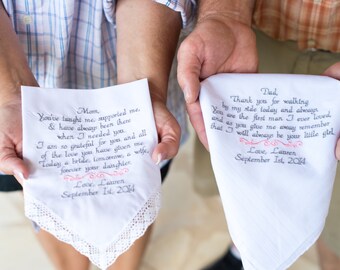 Mom,
You've taught me, supported me,
& have always been there
when I needed you.
I am so grateful for you and all
of the love you have given me.
Today a bride, tomorrow, a wife,
forever your daughter.
Love, Lauren
September 1st, 2014
Dad,
Thank you for walking
by my side today and always.
You are the first man I ever loved
and as you give me away remember
that I will always be your little girl.
Love, Lauren
September 1st, 2014